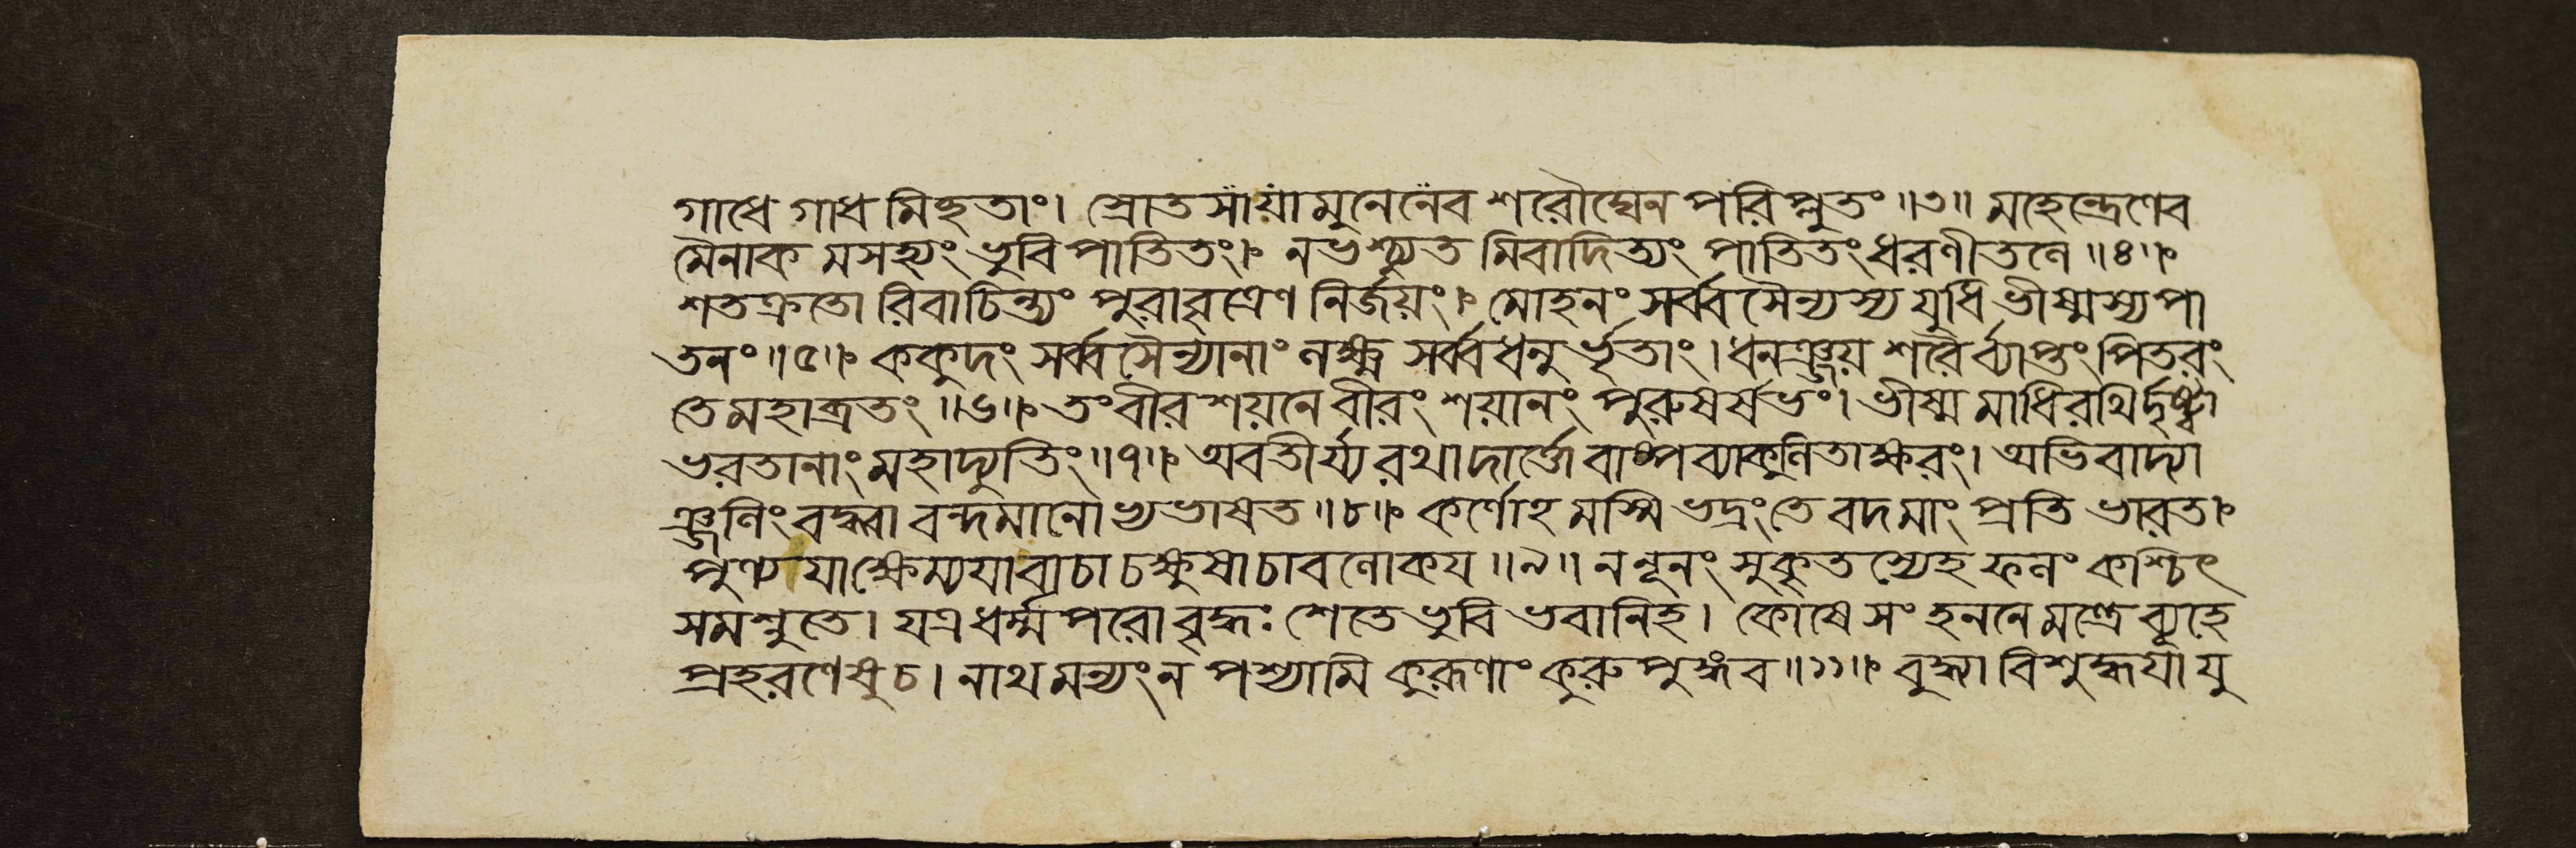 গাধে গাধমিছতাং। স্রোতসাংয়ামুনেনেব শরৌঘেন পরিপ্লুতং ॥৩॥ মহেন্দ্রেণেব
মৈনাকমসহ্যং ভুবি পাতিতং। নভশ্চ্যুতমিবাদিত্যং পাতিতং ধরণীতলে ॥৪॥
শতক্রতোরিবাচিন্ত্যং পুরাবৃত্রেণ নির্জয়ং। মোহনং সর্ব্বসৈন্যস্য যুধি ভীষ্মস্য পা
তনং ॥৫॥ ককুদং সর্ব্বসৈন্যানাং লক্ষ্ম সর্ব্বধনুর্ভৃতাং। ধনঞ্জয় শরৈর্ব্যাপ্তং পিতরং
তে মহাব্রতং ॥৬॥ তং বীরশয়নে বীরং শয়ানং পুরুষর্ষভং। ভীষ্মমাধিরথির্দৃষ্ট্বা
ভরতানাং মহাদ্যুতিং ॥৭॥ অবতীর্য্য রথাদার্ত্তো বাষ্পব্যাকুলিতাক্ষরং। অভিবাদ্যা
ঞ্জলিং বদ্ধ্বা বন্দমানোভ্যভাষত ॥৮॥ কর্ণোহমস্মি ভদ্রং তে বদ মাং প্রতি ভারত।
পুণ্যয়া ক্ষেম্যয়া বাচা চক্ষুষা চাবলোকয় ॥৯॥ ন নূনং সুকৃতস্যেহ ফলং কশ্চিৎ
সমশ্নুতে। যত্র ধর্ম্মপরো বৃদ্ধঃ শেতে ভুবি ভবানিহ। কোষে সংহননে মন্ত্রে ব্যূহে
প্রহরণেষু চ। নাথমন্যং ন পশ্যামি কুরূণাং কুরুপুঙ্গব ॥১১॥ বুদ্ধ্যা বিশুদ্ধয়া যু